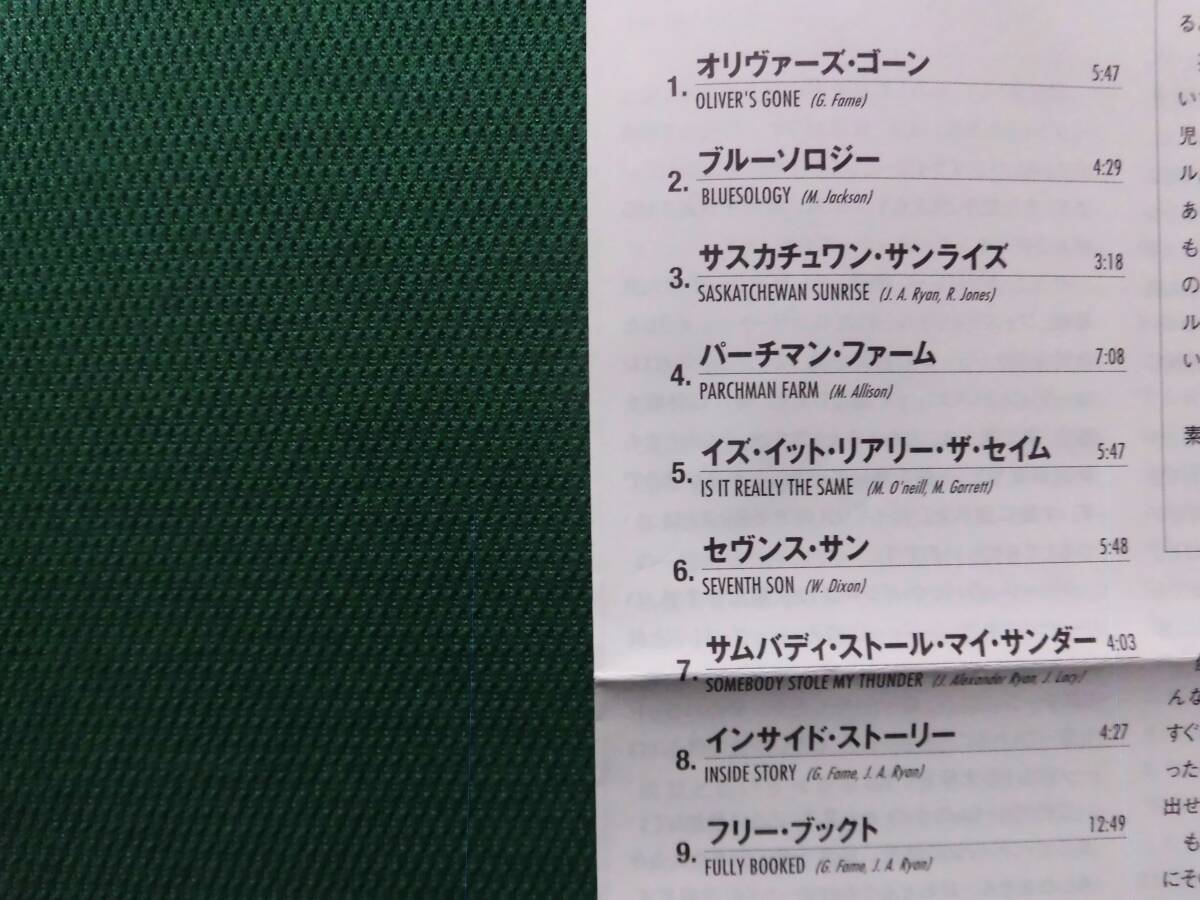 1. オリヴァーズ・ゴーン 5:47
OLIVER'S GONE (G. Fame)
2. ブルーソロジー 4:29
BLUESOLOGY (M. Jackson)
3. サスカチュワン・サンライズ 3:18
SASKATCHEWAN SUNRISE (J. A. Ryan, R. Jones)
4. パーチマン・ファーム 7:08
PARCHMAN FARM (M. Allison)
5. イズ・イット・リアリー・ザ・セイム 5:47
IS IT REALLY THE SAME (M. O'neill, M. Garrett)
6. セヴンス・サン 5:48
SEVENTH SON (W. Dixon)
7. サムバディ・ストール・マイ・サンダー 4:03
SOMEBODY STOLE MY THUNDER (J. Alexander Ryan, J. Lacy)
8. インサイド・ストーリー 4:27
INSIDE STORY (G. Fame, J. A. Ryan)
9. フリー・ブックト 12:49
FULLY BOOKED (G. Fame, J. A. Ryan)
る
い
児
ル
あ
も
の
ル
い
素
んな
すぐ
った
出せ
も
にそ